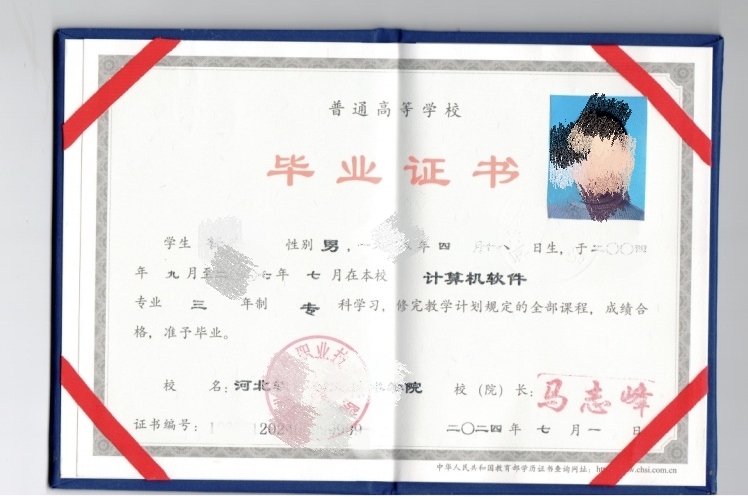 普通高等学校
毕业证书
学生 性别 男，一 年 四 月十八日生，于二〇〇四
年 九 月至二 年 七 月在本校 计算机软件
专业 三 年制 专 科学习，修完教学计划规定的全部课程，成绩合
格，准予毕业。
职业技
校 名：河北 学院 校（院）长：马志峰
证书编号： 二〇二四 年 七 月 一 日
中华人民共和国教育部学历证书查询网址： http://www.chsi.com.cn